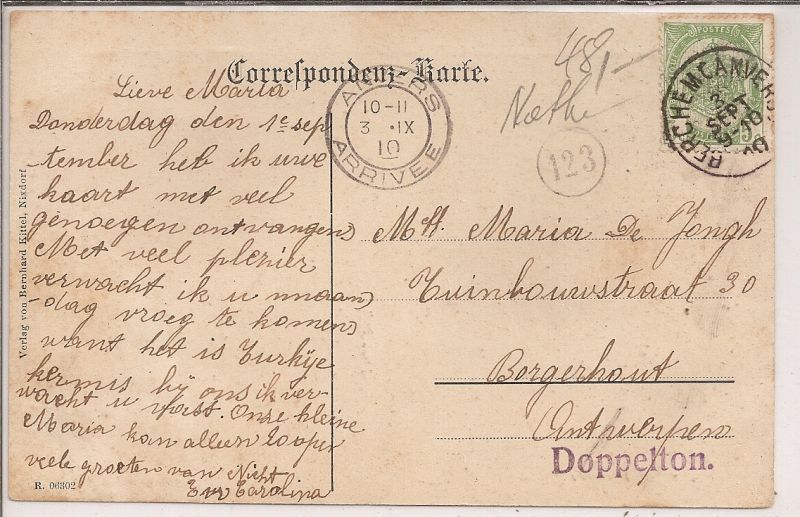 Correspondenz-Karte.
Lieve Maria
Donderdag den 1e sep
tember heb ik uwe
kaart met veel
genoegen ontvangen
Met veel plezier
verwacht ik u maan
-dag vroeg te komen
want het is Turkije
kermis bij ons ik ver-
wacht u vast. Onze kleine
Maria kan alleen loopen
veele groeten van Nicht
Carolina
ANVERS
10-11
3 IX
10
ARRIVEE
48,-
123
POSTES
BERCHEM (ANVERS)
2
SEPT
10
Mej. Maria De Jongh
Tuinbouwstraat 30
Borgerhout
Antwerpen
Doppelton.
Verlag von Bernhard Kittel, Nixdorf.
R. 06302